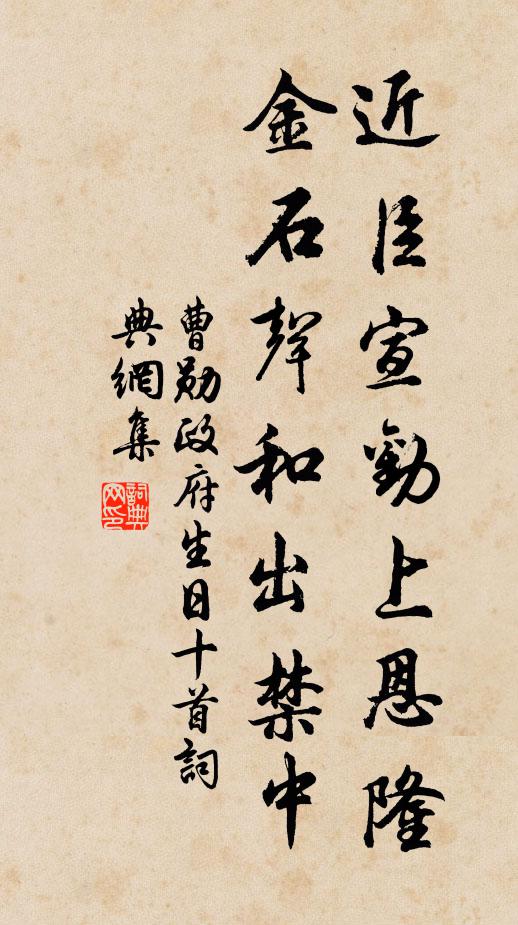 近臣宣勸上恩隆
金石聲和出禁中
曹勛政府生日十首詞
典網集
詞典网印